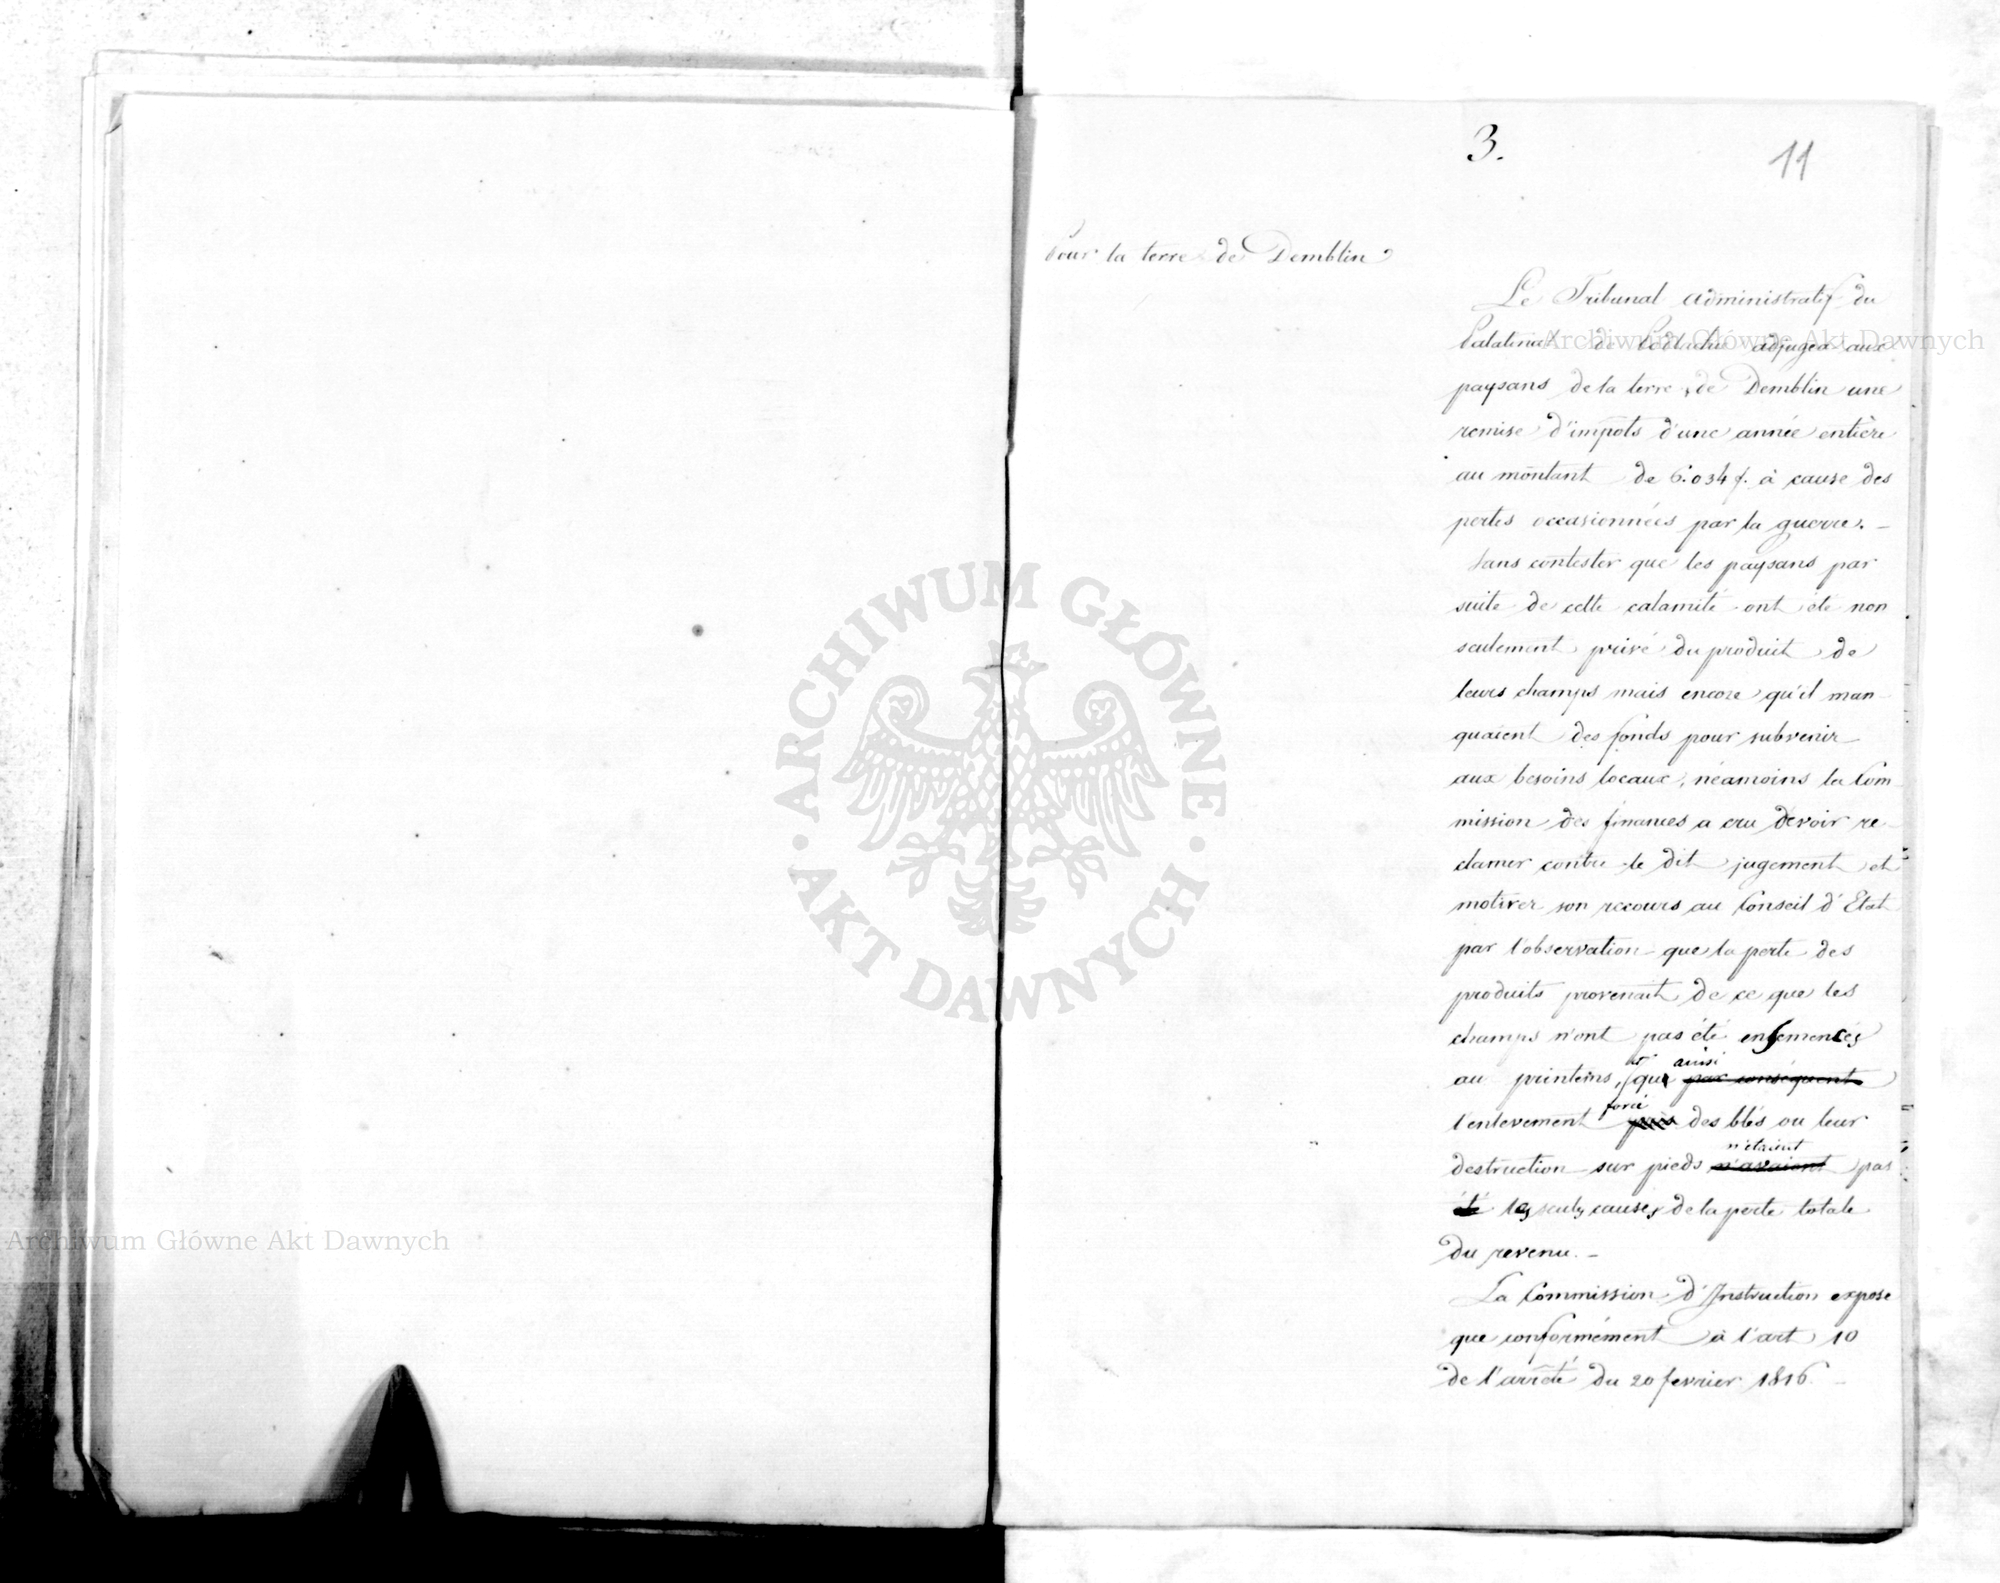 3.
11
Pour la terre de Demblin
Le Tribunal administratif du
Palatinat de Podlachie adjugea aux
paysans de la terre de Demblin une
remise d'impots d'une année entière
au montant de 6.034 f. à cause des
pertes occasionnées par la guerre. -
Sans contester que les paysans par
suite de cette calamité ont été non
seulement privé du produit de
leurs champs mais encore qu'il man
quaient des fonds pour subvenir
aux besoins locaux, néamoins la Com
mission des finances a cru devoir re
clamer contre le dit jugement et
motiver son recours au Conseil d'Etat
par l'observation que la perte des
produits provenait de ce que les
champs n'ont pas été ensemencés
au printems, et que ainsi par conséquent
l'enlevement forcé des blés ou leur
destruction sur pieds n'étaient n'avaient pas
été les seules causes de la perte totale
du revenu. -
La Commission d'Instruction expose
que conformément à l'art 10
de l'arrêté du 20 fevrier 1816. -
ARCHIWUM GŁÓWNE · AKT DAWNYCH ·
Archiwum Główne Akt Dawnych
Archiwum Główne Akt Dawnych